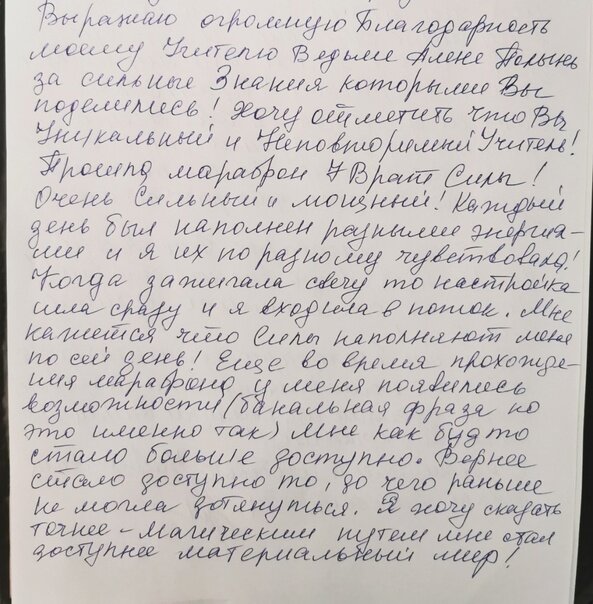 Выражаю огромную Благодарность
моему Учителю Ведьме Алене Полынь
за сильные Знания которыми Вы
поделились! Хочу отметить что Вы
Уникальный и Неповторимый Учитель!
Прошла марафон 7 Врат Силы!
Очень Сильный и мощный! Каждый
день был наполнен разными энергия-
ми и я их по разному чувствовала!
Когда зажигала свечу то настройка
шла сразу и я входила в поток. Мне
кажется что Силы наполняют меня
по сей день! Еще во время прохожде-
ния марафона у меня появились
возможности (банальная фраза но
это именно так) Мне как будто
стало больше доступно. Вернее
стало доступно то, до чего раньше
не могла дотянуться. Я хочу сказать
точнее - магическим путем мне стал
доступнее материальный мир!